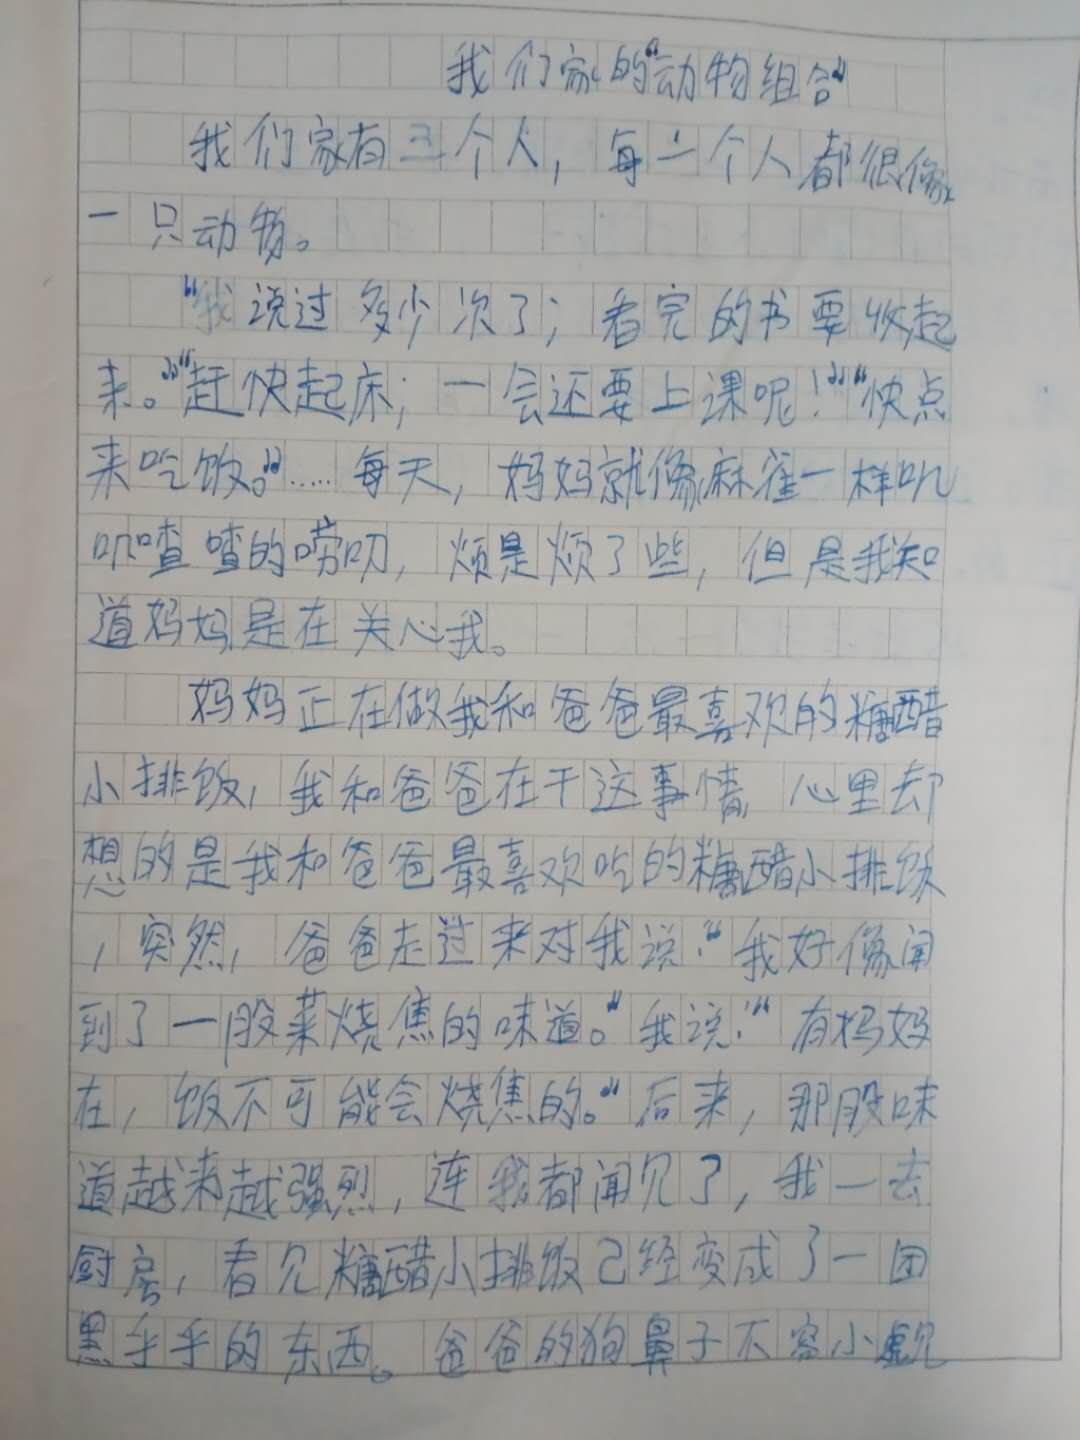 我们家的“动物组合”
我们家有三个人，每一个人都很像
一只动物。
“我说过多少次了；看完的书要收起
来。”“赶快起床；一会还要上课呢！”“快点
来吃饭。”……每天，妈妈就像麻雀一样叽
叽喳喳的唠叨，烦是烦了些，但是我知
道妈妈是在关心我。
妈妈正在做我和爸爸最喜欢的糖醋
小排饭，我和爸爸在干这事情，心里却
想的是我和爸爸最喜欢吃的糖醋小排饭
，突然，爸爸走过来对我说：“我好像闻
到了一股菜烧焦的味道。”我说：“有妈妈
在，饭不可能会烧焦的。”后来，那股味
道越来越强烈，连我都闻见了，我一去
厨房，看见糖醋小排饭已经变成了一团
黑乎乎的东西。爸爸的狗鼻子不容小觑